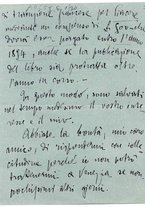 a transazione
il compenso di
dovrà esser pagato entro l'anno
1894, anche se la pubblicazione
del libro sia protratta oltre
l'anno in corso.
In questo modo, sono salvati
nel tempo medesimo il vostro inte-
resse e il mio.
Abbiate la bontà, mio caro
amico, di rispondermi con solle-
citudine perché io non potrò
trattenermi a Venezia se non
pochissimi altri giorni.